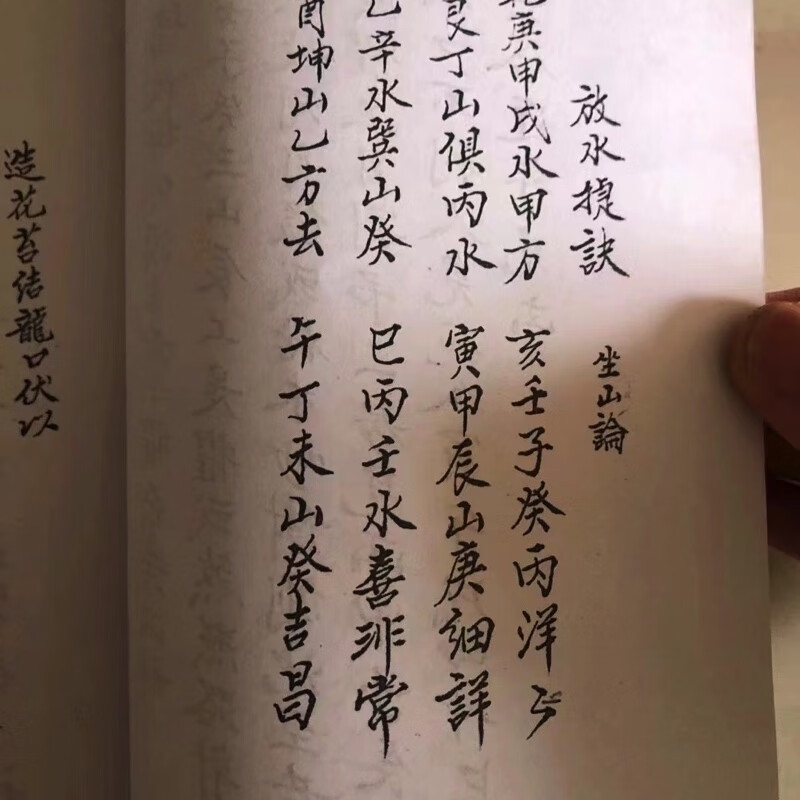 放水捷訣 坐山論
庚申戌水甲方 亥壬子癸丙洋々
艮丁山俱丙水 寅甲辰山庚細詳
乙辛水巽山癸 巳丙壬水喜非常
酉坤山乙方去 午丁未山癸吉昌
造花苔结龍口伏以